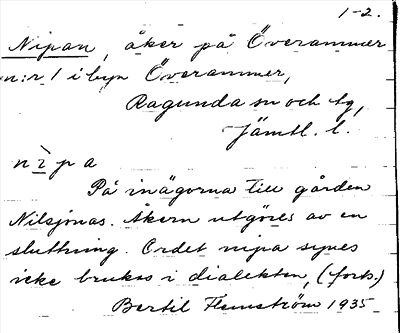 1-2.
Nipan, åker på Överammer
n:r 1 i byn Överammer,
Ragunda sn och tg,
Jämtl. l.
nìpa
På inägorna till gården
Nilsjönas. Åkern utgöres av en
sluttning. Ordet nipa synes
icke brukas i dialekten, (forts.)
Bertil Flemström 1935